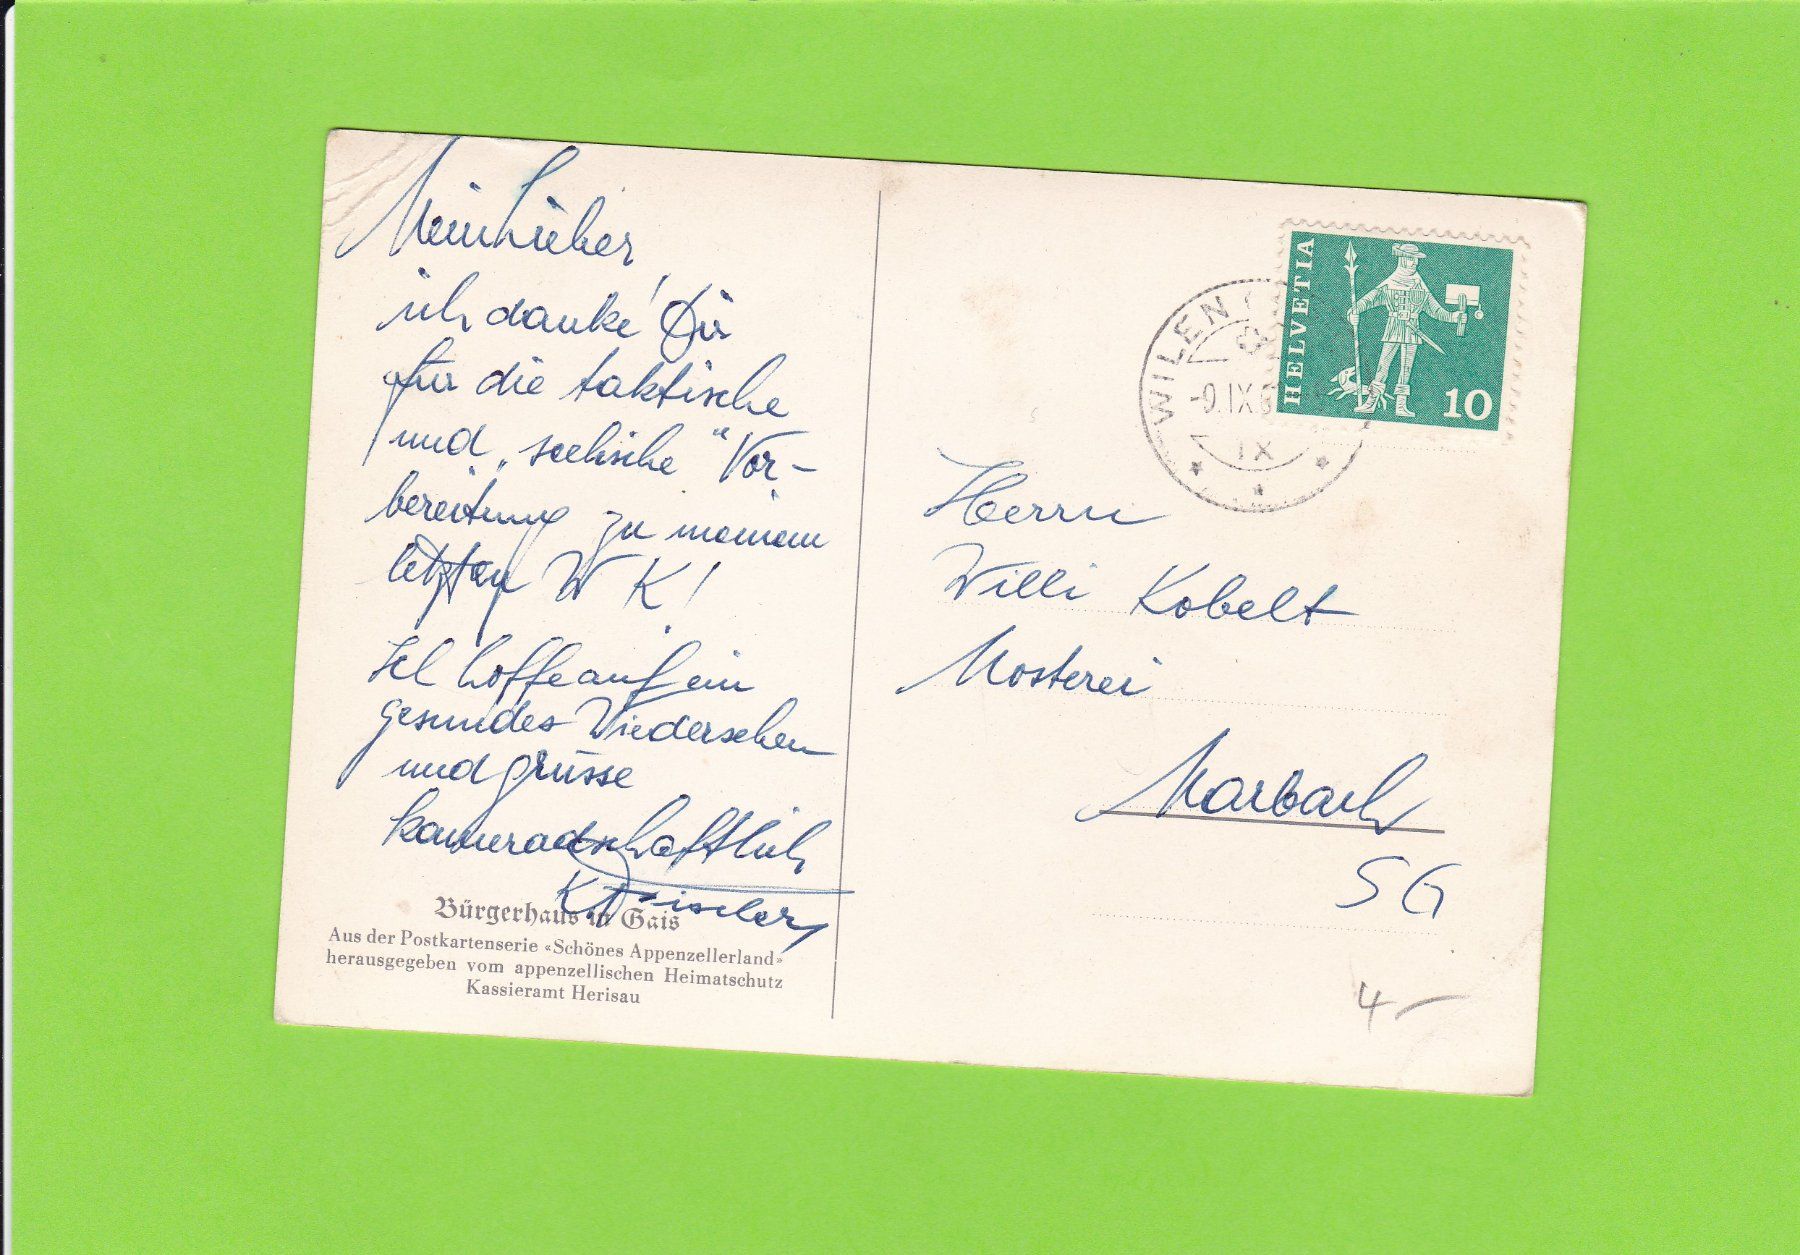 Mein Lieber
ich danke Dir
für die taktische
und „seelische" Vor-
bereitung zu meinem
letzten W K!
Ich hoffe auf ein
gesundes Wiedersehen
und grüsse
kameradschaftlich
Bürgerhaus in Gais
Aus der Postkartenserie «Schönes Appenzellerland»
herausgegeben vom appenzellischen Heimatschutz
Kassieramt Herisau
HELVETIA
10
WILEN
-9.IX.6
IX
Herrn
Willi Kobelt
Mosterei
Marbach
SG
4.-